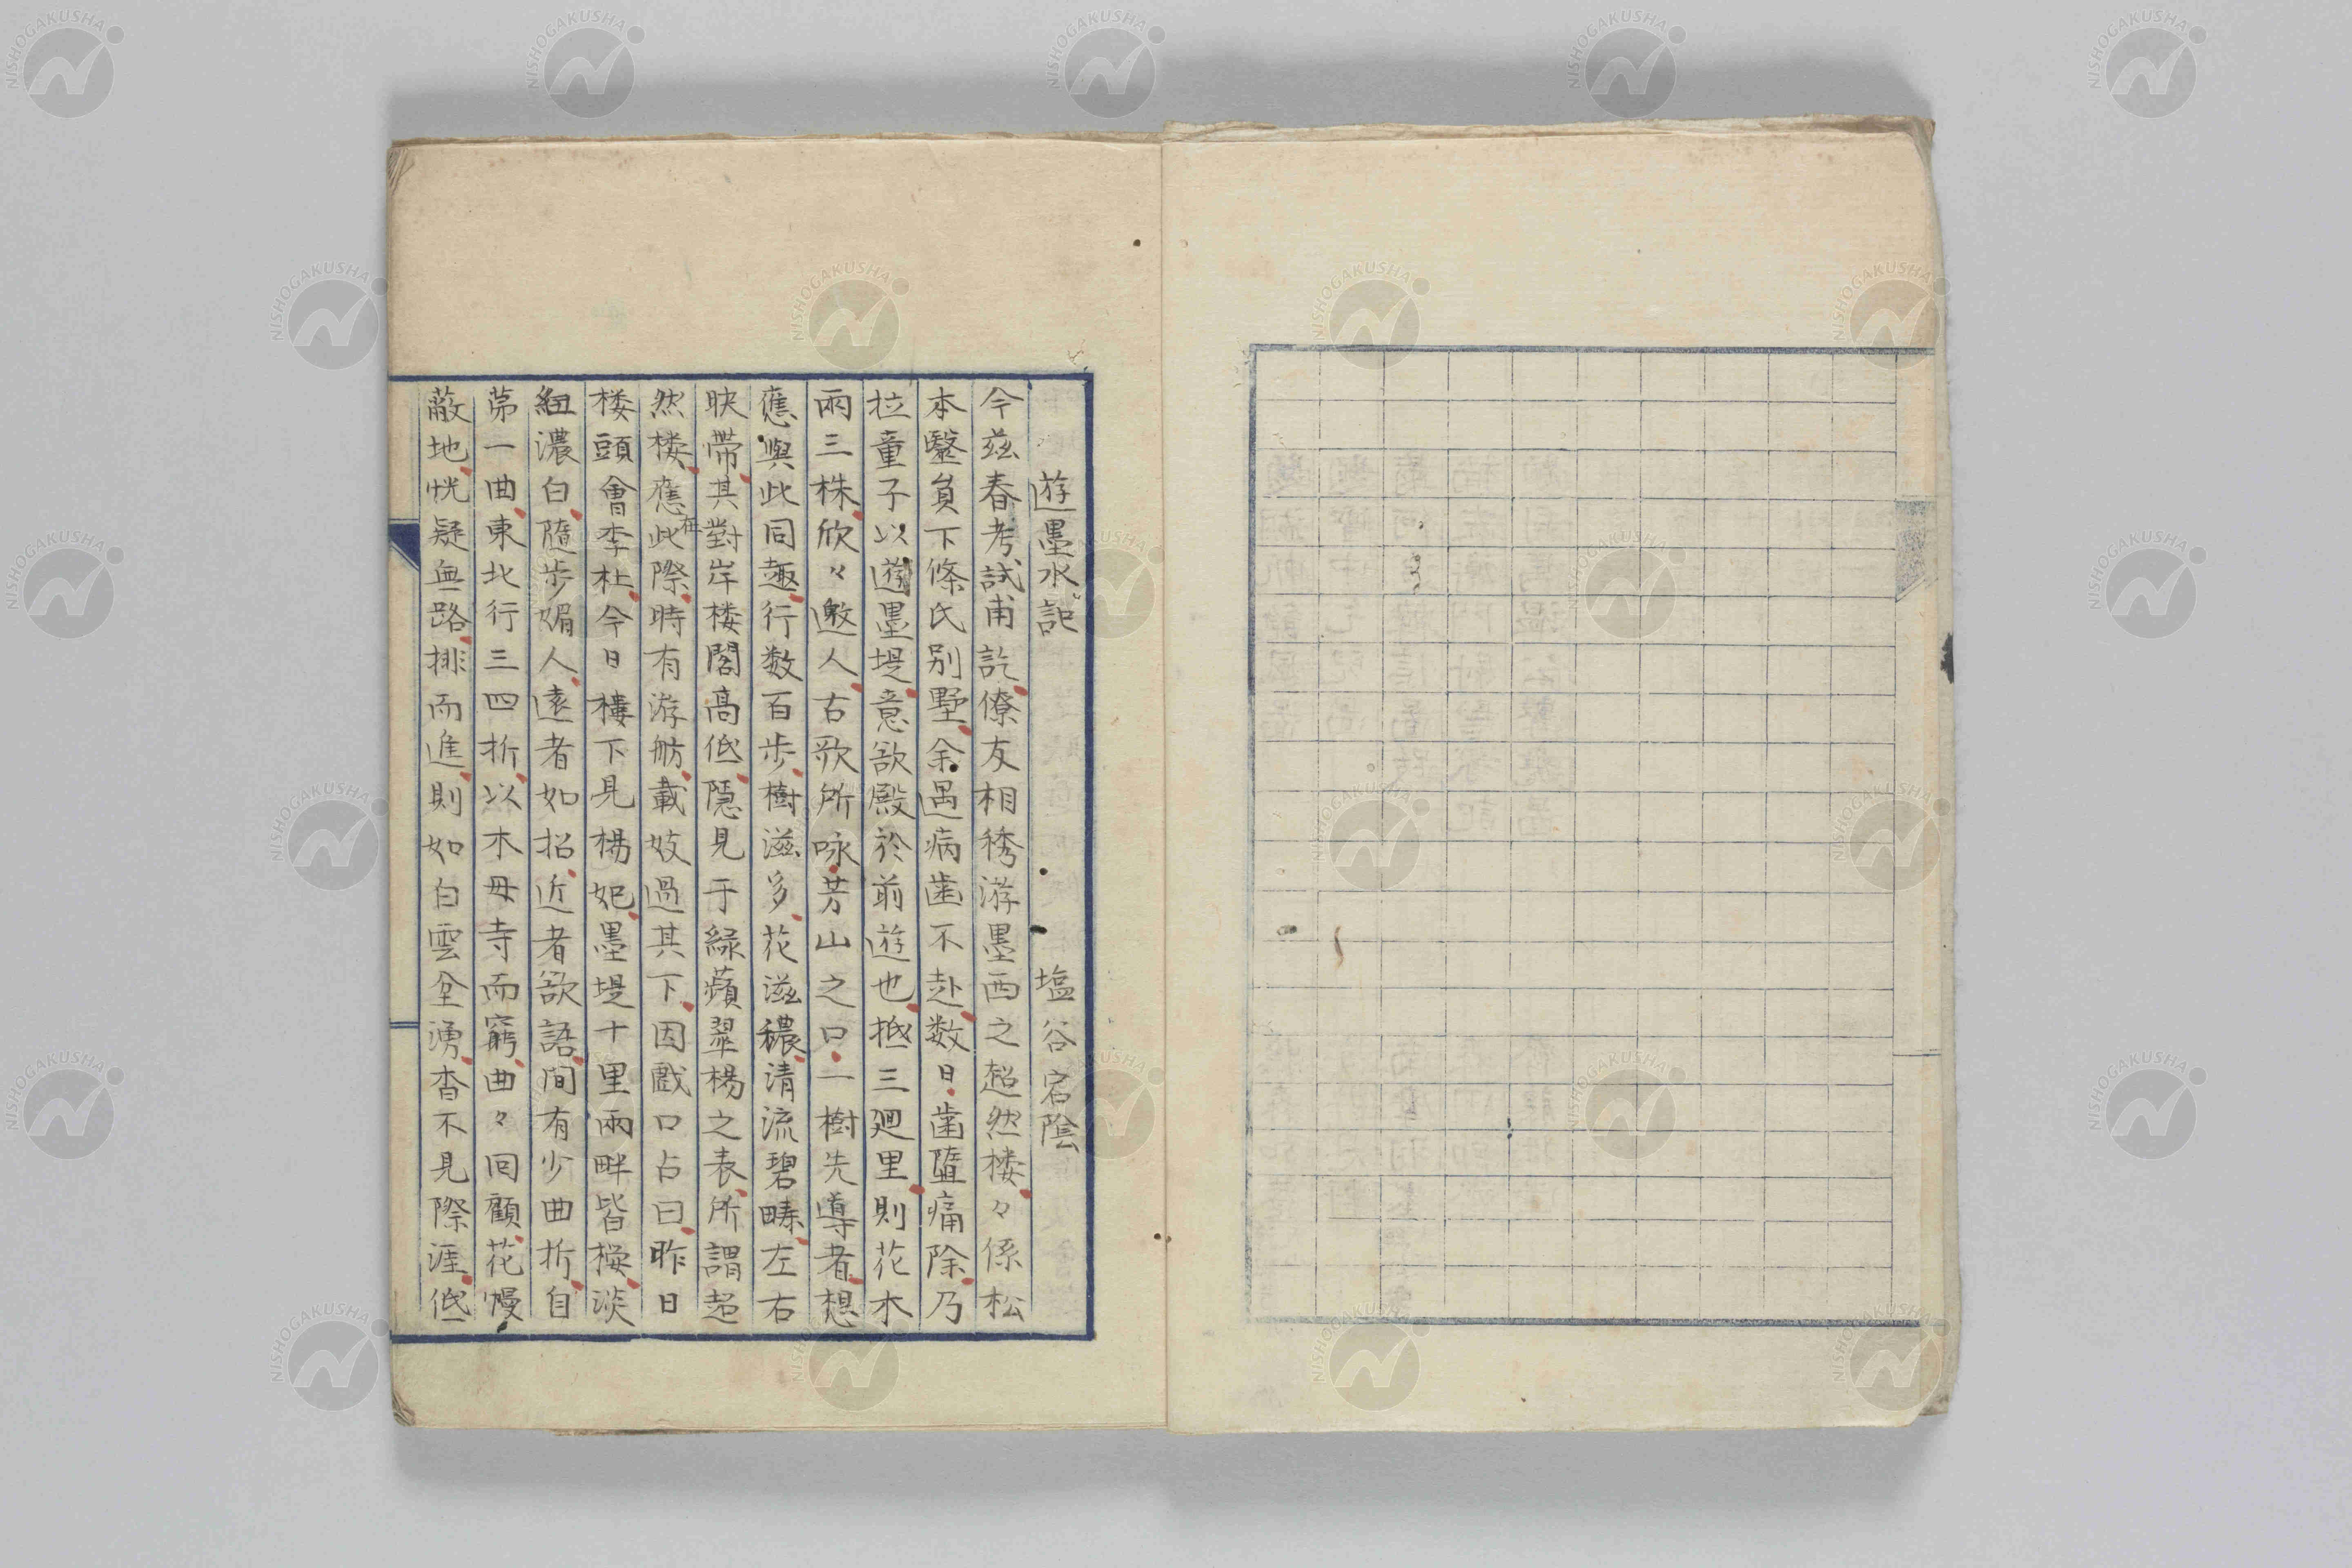 遊墨水記　塩谷宕陰
今茲春考試甫訖僚友相誘游墨西之超然楼々係松
本毉員下條氏別墅余遇病歯不赴数日歯𧏮痛除乃
拉童子以遊墨堤意欲殿於前遊也抵三廻里則花木
兩三株欣々邀人古歌所咏芳山之口一樹先導者想
應與此同趣行数百歩樹滋多花滋穠清流碧疇左右
映帶其對岸楼閣高低隠見于綠蘋翠楊之表所謂超
然楼應在此際時有游舫載妓過其下因戲口占曰昨日
楼頭會李杜今日樓下見楊妃墨堤十里兩畔皆櫻淡
紅濃白隨歩媚人遠者如招近者欲語間有少曲折自
第一曲東北行三四折以木母寺而窮曲々回顧花幔
蔽地恍疑無路排而進則如白雲坌湧杳不見際涯低
NISHOGAKUSHA